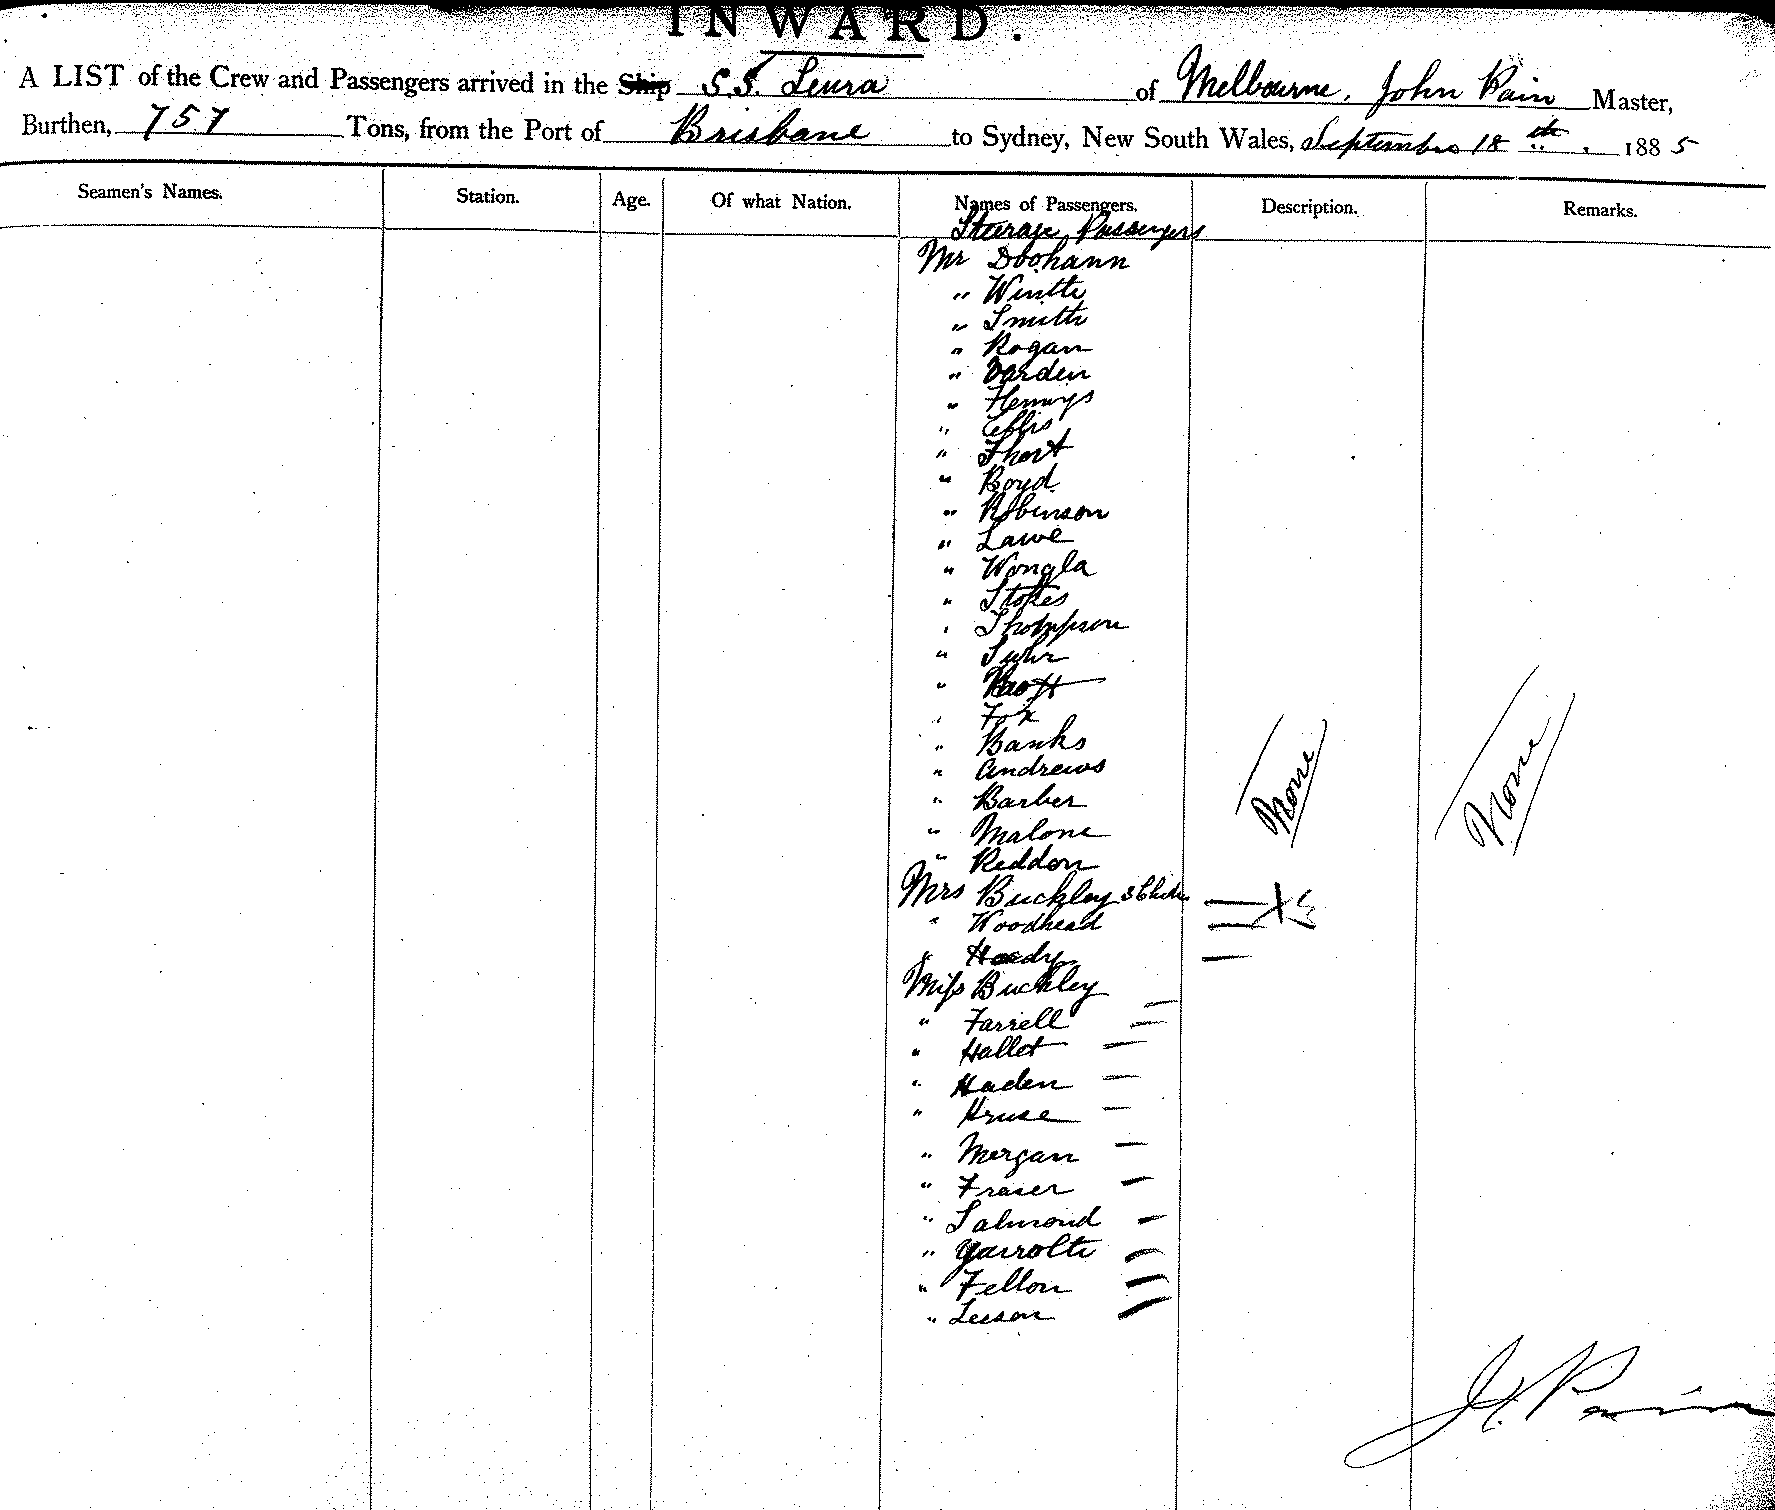 INWARD.
A LIST of the Crew and Passengers arrived in the Ship S.S. Leura of Melbourne. John Pain Master,
Burthen, 757 Tons, from the Port of Brisbane to Sydney, New South Wales, September 18th. 1885
Seamen's Names. Station. Age. Of what Nation. Names of Passengers. Description. Remarks.
Steerage Passengers
Mr Doohann
" Wintle
" Smith
" Rogan
" Varden
" Hennys
" Ellis
" Short
" Boyd.
" Robinson
" Lawe
" Wongla
" Stokes
" Thompson
" Suhr
"
" Fox
" Banks
" Andrews
" Barber
" Malone
" Reddon
None None
Mrs Buckley 3
" Woodhead
" Hoody
Miss Buckley
" Farrell
" Hallet
" Haden
" Kruse
" Morgan
" Fraser
" Salmond
"
" Fellon
" Leeson
J. Pain